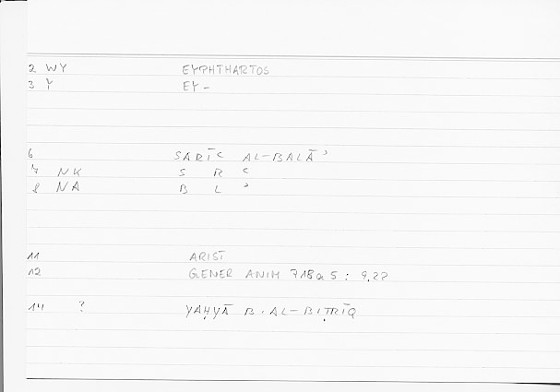 2 WY EYPHTHARTOS
3 Y EY-
6 SARĪʿ AL-BALĀʾ
7 NK S R ʿ
8 NA B L ʾ
11 ARIST
12 GENER ANIM 718a5 : 9,22
14 ? YAḤYĀ B. AL-BIṬRĪQ